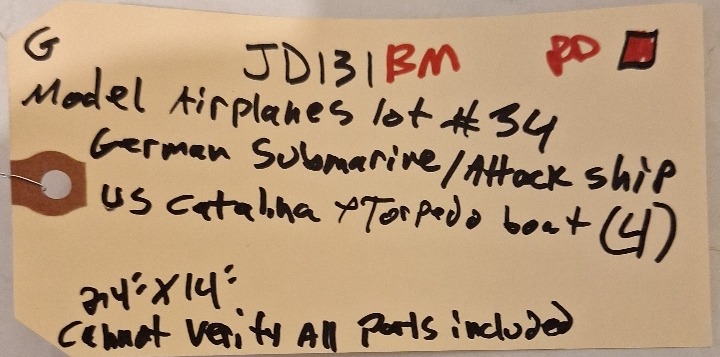 G JD131BM PD
Model Airplanes lot #34
German Submarine/Attack ship
US Catalina + Torpedo boat (4)
24" X 14"
Cannot Verify All parts included